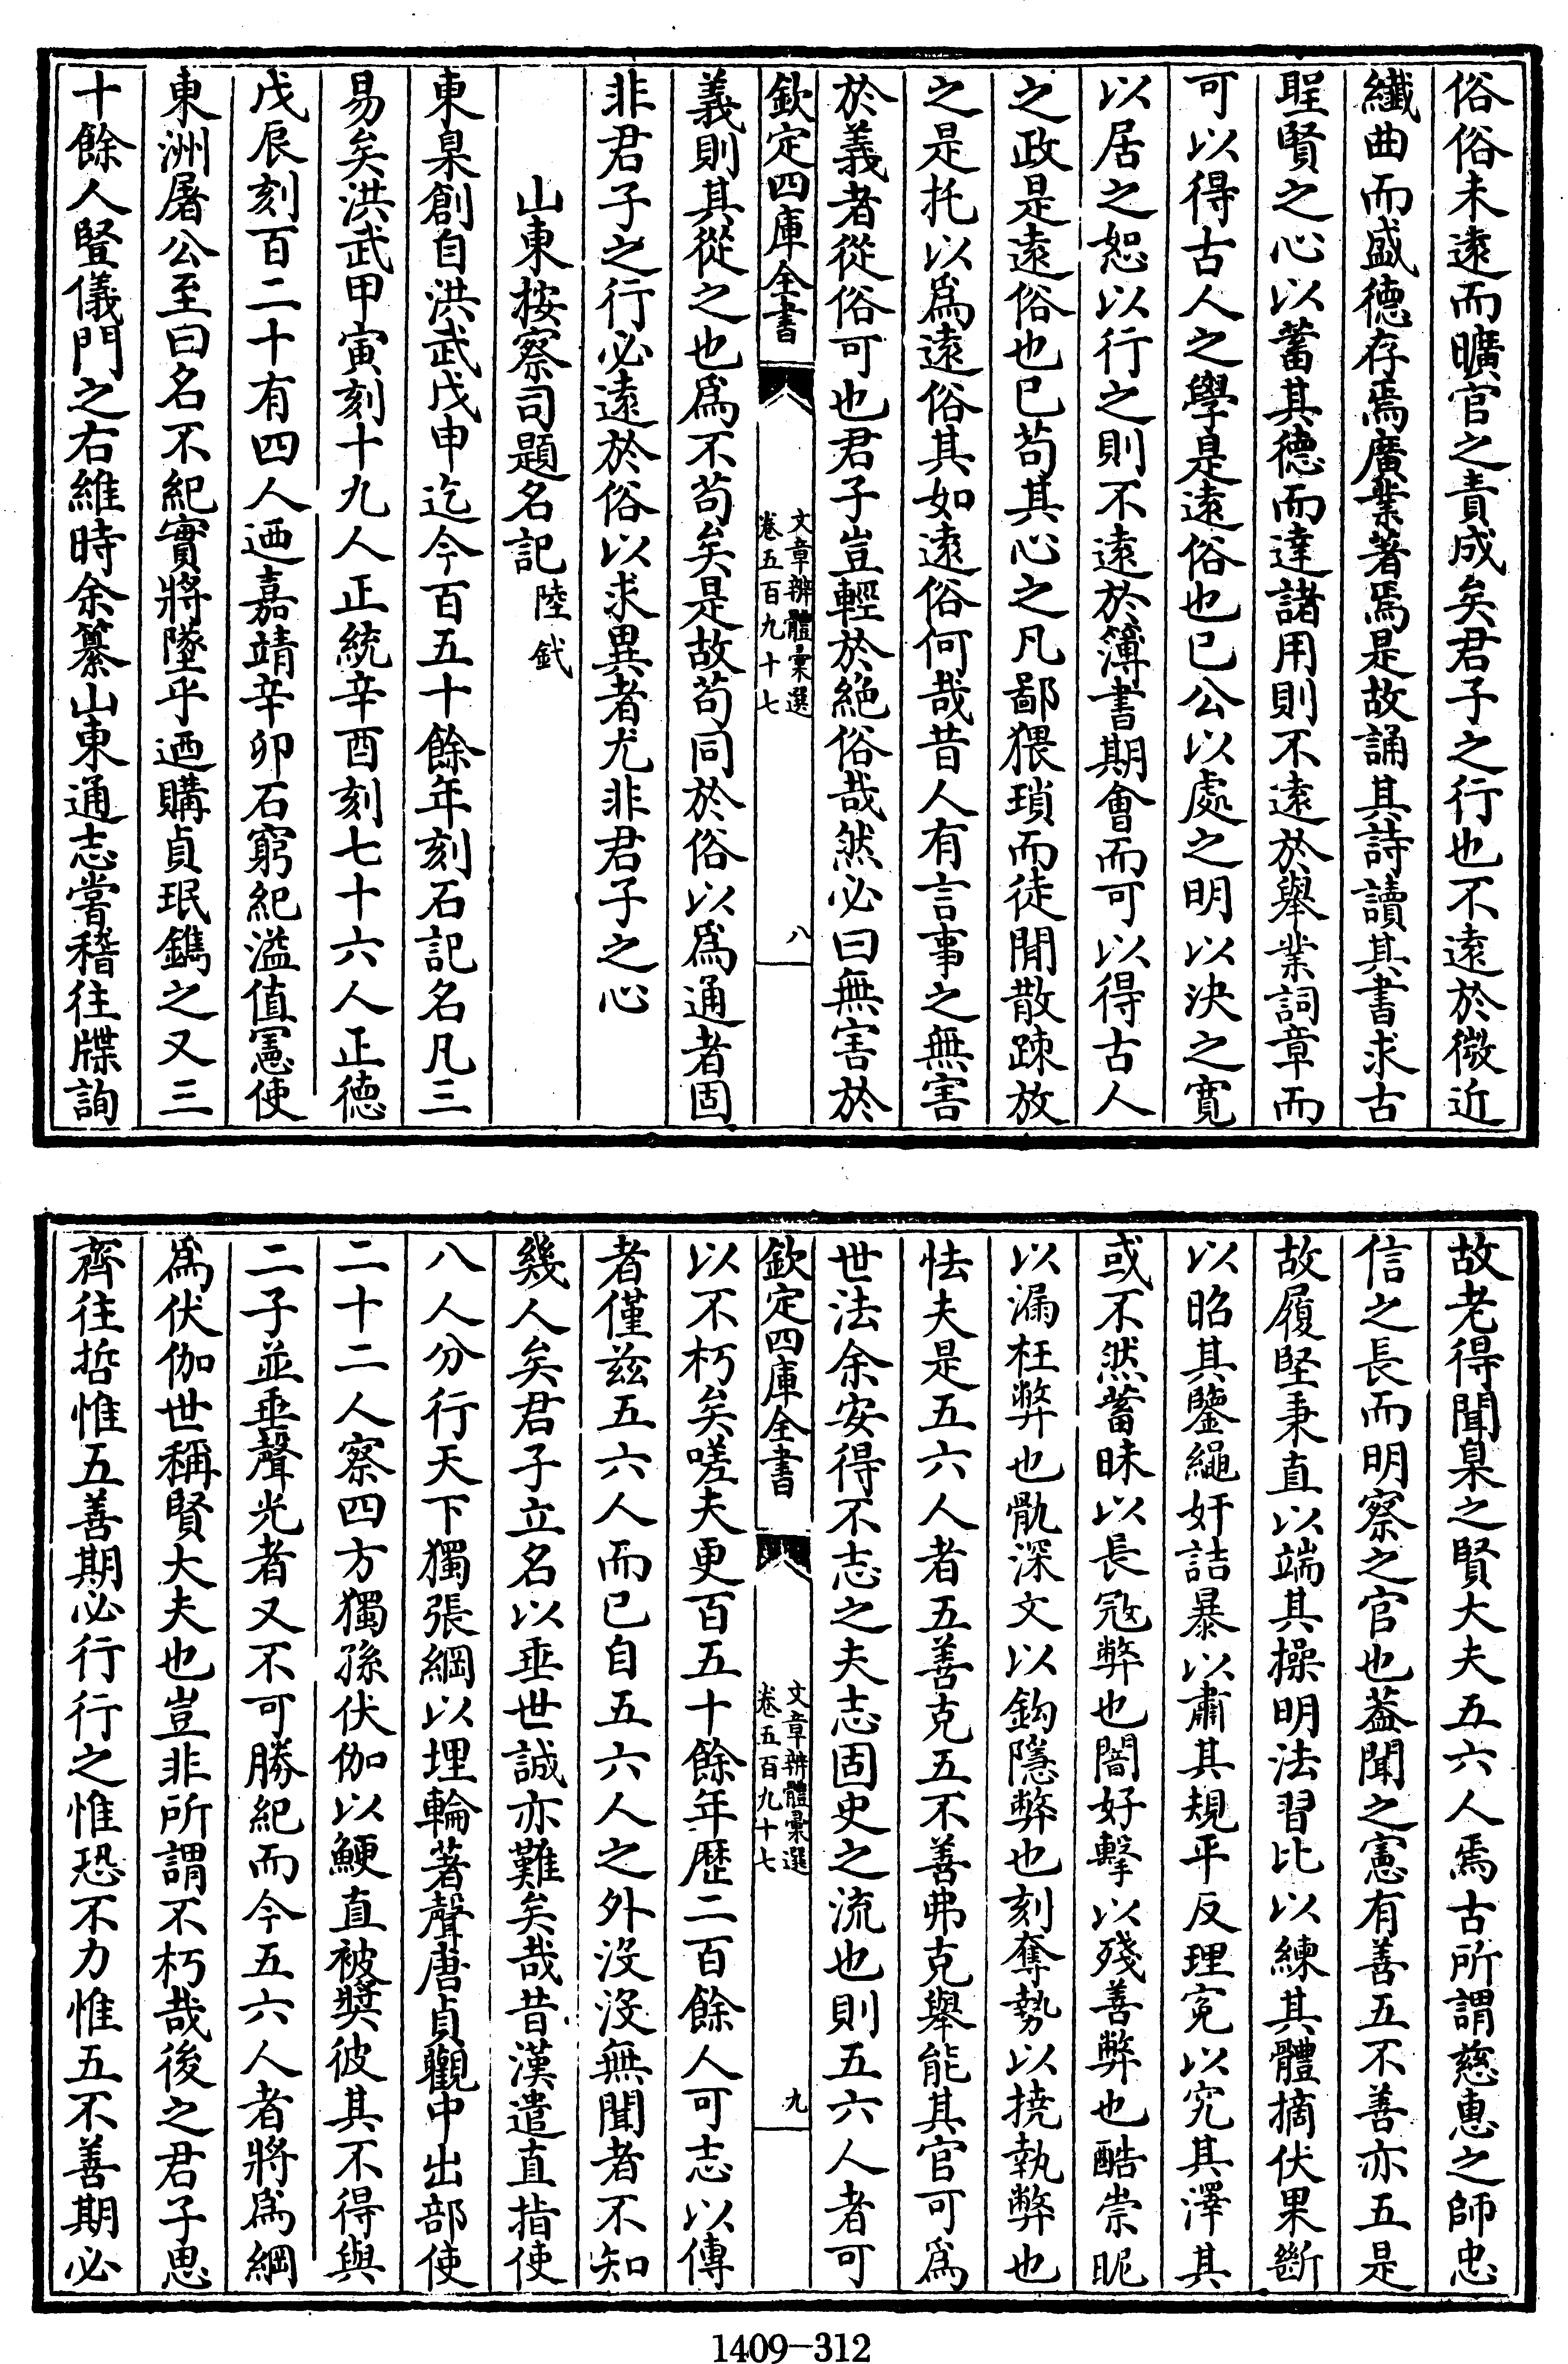 俗俗未遠而曠官之責成矣君子之行也不遠於微近
纖曲而盛德存焉廣業著焉是故誦其詩讀其書求古
聖賢之心以蓄其德而達諸用則不遠於舉業詞章而
可以得古人之學是遠俗也已公以處之明以決之寛
以居之恕以行之則不遠於簿書期會而可以得古人
之政是遠俗也已苟其心之凡鄙猥瑣而徒閒散踈放
之是托以爲遠俗其如遠俗何哉昔人有言事之無害
於義者從俗可也君子豈輕於絶俗哉然必曰無害於
欽定四庫全書
文章辨體彙選
卷五百九十七
八
義則其從之也爲不苟矣是故苟同於俗以爲通者固
非君子之行必遠於俗以求異者尤非君子之心
山東按察司題名記陸釴
東臬創自洪武戊申迄今百五十餘年刻石記名凡三
易矣洪武甲寅刻十九人正統辛酉刻七十六人正德
戊辰刻百二十有四人迺嘉靖辛卯石窮紀溢值憲使
東洲屠公至曰名不紀實將墜乎迺購貞珉鐫之又三
十餘人豎儀門之右維時余纂山東通志嘗稽往牒詢
故老得聞臬之賢大夫五六人焉古所謂慈惠之師忠
信之長而明察之官也葢聞之憲有善五不善亦五是
故履堅秉直以端其操明法習比以練其體摘伏果斷
以昭其鑒繩奸詰暴以肅其規平反理寃以究其澤其
或不然蓄昧以長寇弊也闇好擊以殘善弊也酷崇昵
以漏枉弊也骩深文以鈎隱弊也刻奪勢以撓執弊也
怯夫是五六人者五善克五不善弗克舉能其官可爲
世法余安得不志之夫志固史之流也則五六人者可
欽定四庫全書
文章辨體彙選
卷五百九十七
九
以不朽矣嗟夫更百五十餘年歴二百餘人可志以傳
者僅兹五六人而已自五六人之外沒沒無聞者不知
幾人矣君子立名以垂世誠亦難矣哉昔漢遣直指使
八人分行天下獨張綱以埋輪著聲唐貞觀中出部使
二十二人察四方獨孫伏伽以鯁直被奬彼其不得與
二子並垂聲光者又不可勝紀而今五六人者將爲綱
爲伏伽世稱賢大夫也豈非所謂不朽哉後之君子思
齊往哲惟五善期必行行之惟恐不力惟五不善期必
1409-312